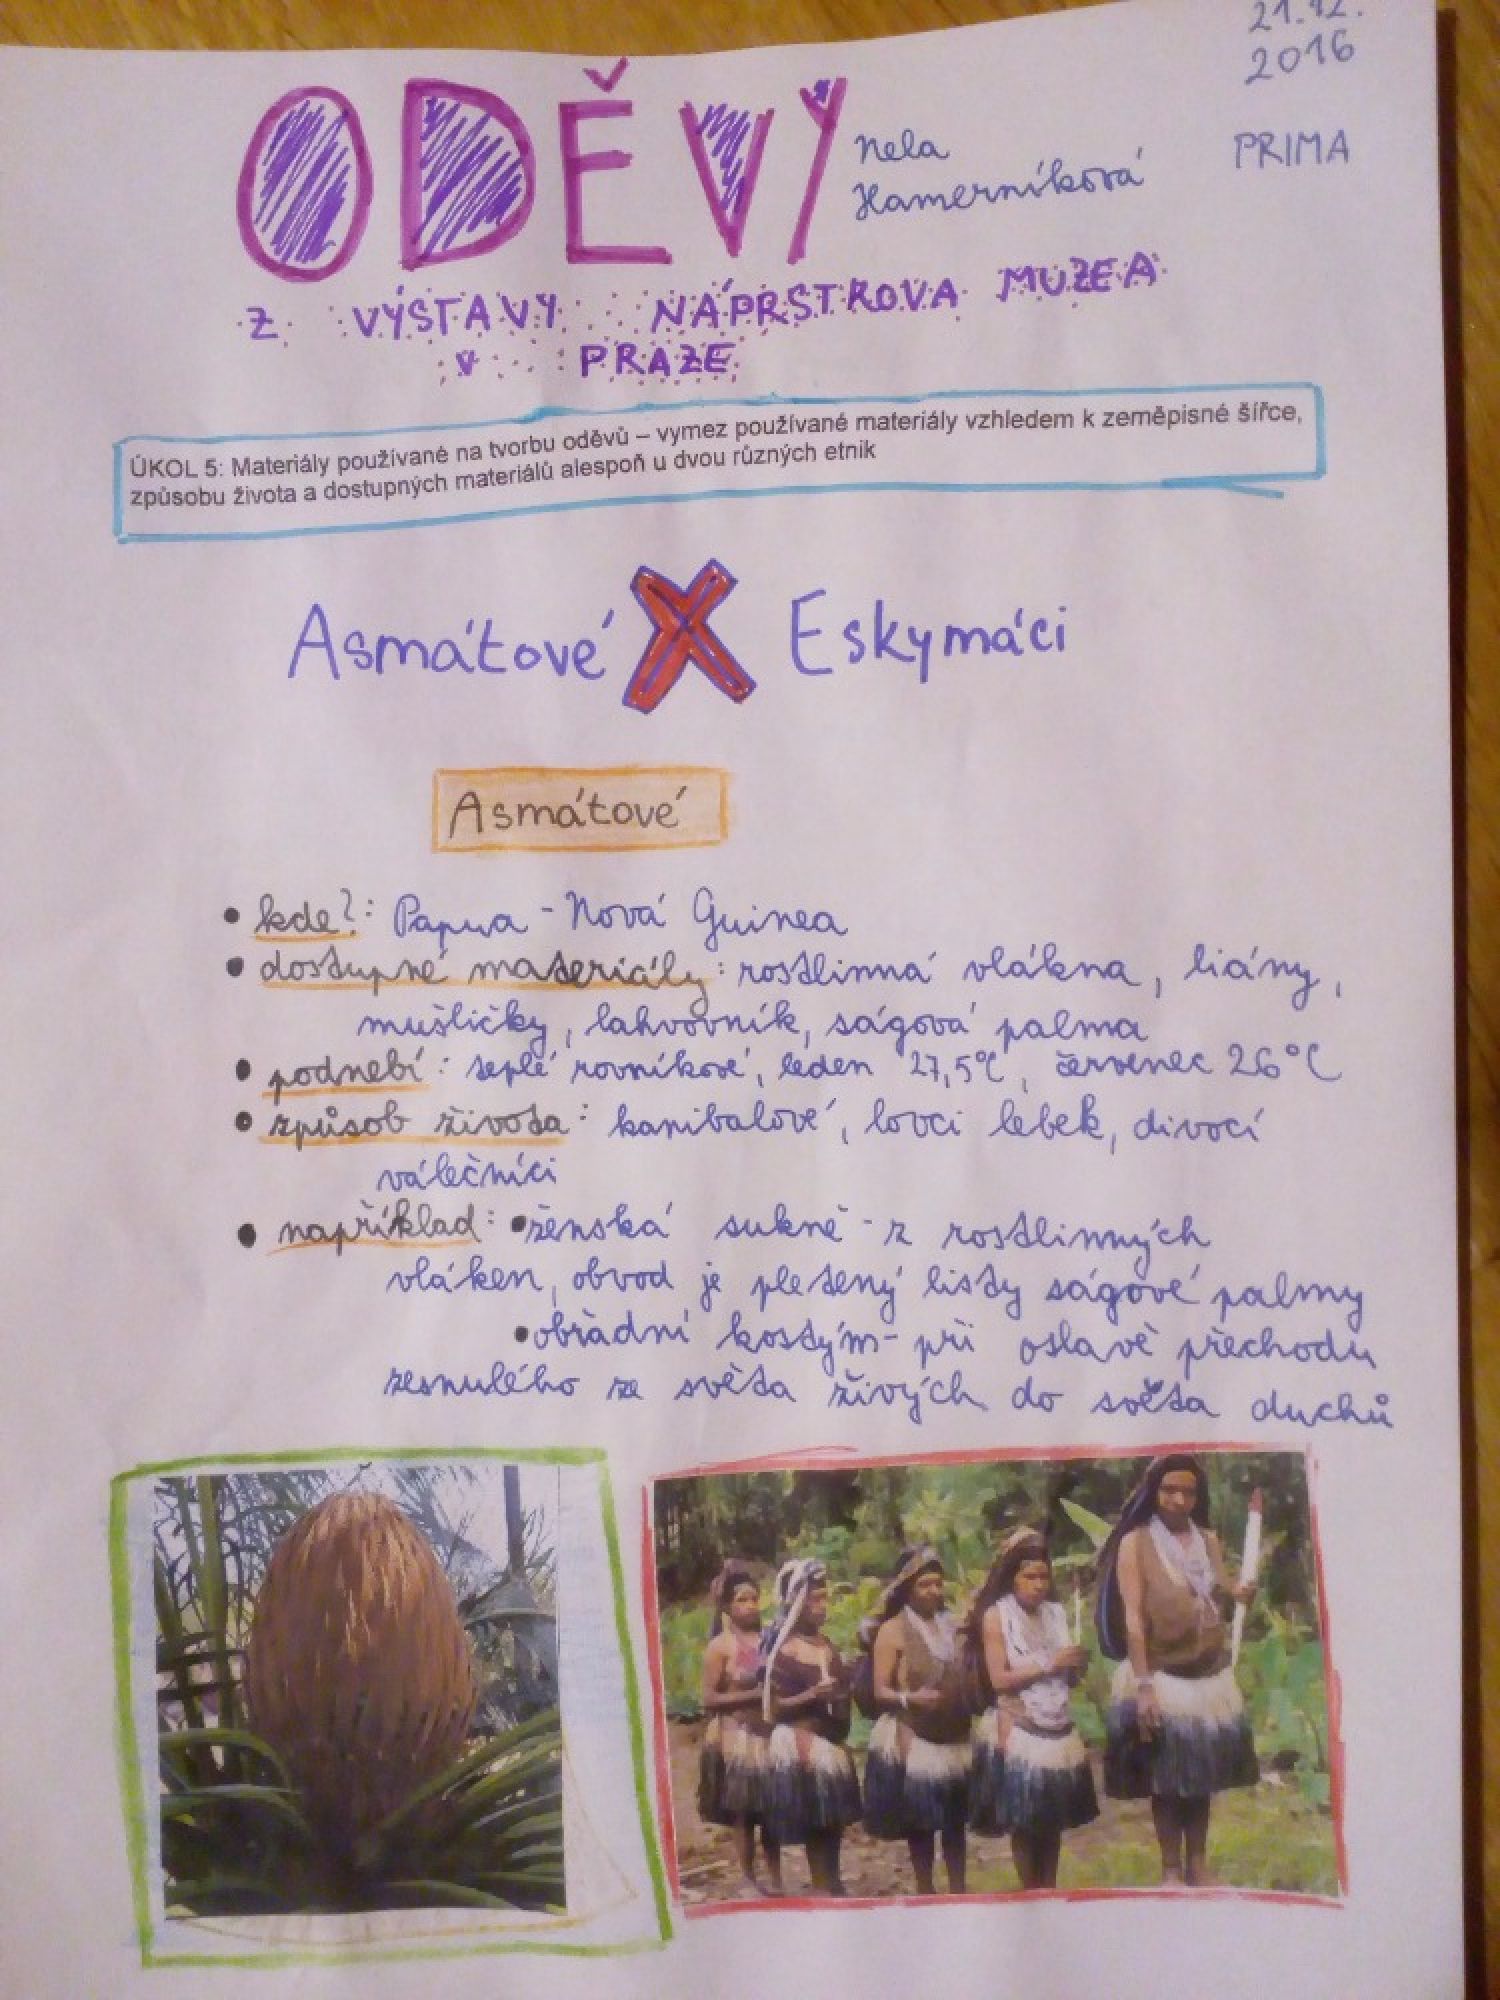 21.12.
2016
ODĚVY
Nela
Hamerníková
PRIMA
Z VÝSTAVY NÁPRSTKOVA MUZEA
V PRAZE
ÚKOL 5: Materiály používané na tvorbu oděvů – vymez používané materiály vzhledem k zeměpisné šířce,
způsobu života a dostupných materiálů alespoň u dvou různých etnik
Asmátové X Eskymáci
Asmátové
• kde?: Papua - Nová Guinea
• dostupné materiály: rostlinná vlákna, liány,
mušličky, lahvovník, ságová palma
• podnebí: teplé rovníkové, leden 27,5°C, červenec 26°C
• způsob života: kanibalové, lovci lebek, divocí
válečníci
• například: • ženská sukně - z rostlinných
vláken, obvod je pletený listy ságové palmy
• obřadní kostým - při oslavě přechodu
zesnulého ze světa živých do světa duchů